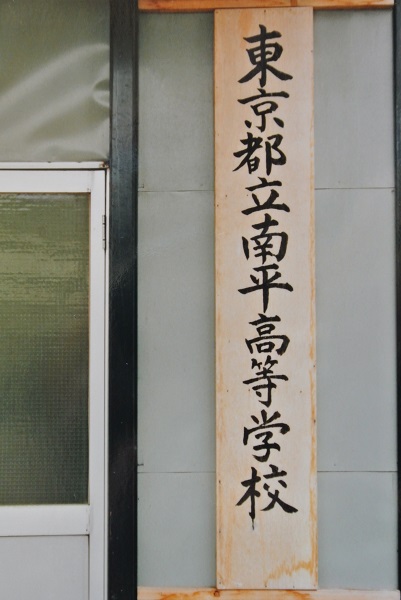 東京都立南平高等学校